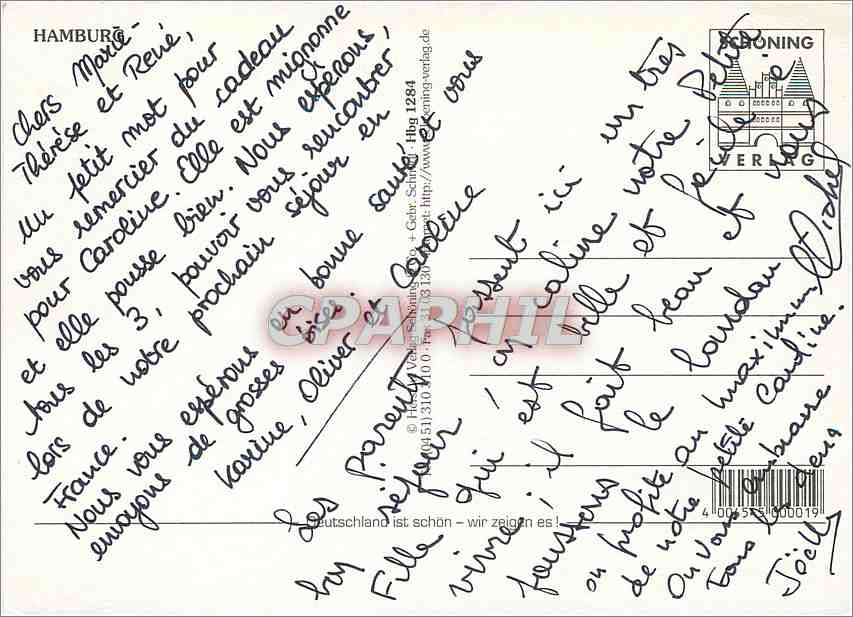 HAMBURG
Chers Marie-
Thérèse et René,
Un petit mot pour
vous remercier du cadeau
pour Caroline. Elle est mignonne
et elle pousse bien. Nous espérons,
tous les 3, pouvoir vous rencontrer
lors de notre prochain séjour en
France.
Nous vous espérons en bonne santé et vous
envoyons de grosses bises.
Karine, Oliver et Caroline
© Herst. + Verlag Schöning & Co. + Gebr. Schmidt · Hbg 1284
Tel. (04 51) 310 310 0 · Fax 31 03 130 · Internet: http://www.schoening-verlag.de
SCHÖNING
VERLAG
Les parents passent ici un très
bon séjour, en câline notre petite
Fille qui est belle et facile à
vivre; il fait beau et nous
poussons le landau
on profite au maximum
de notre petite Caroline.
On vous embrasse
Tous les deux
Joëlle
Michel
CPAPHIL
4 004545 000019
Deutschland ist schön – wir zeigen es!